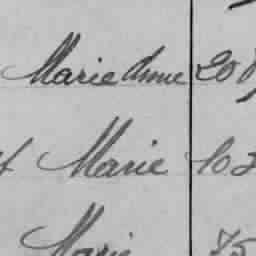 Marie Anne 20
Marie 102
Marie 75